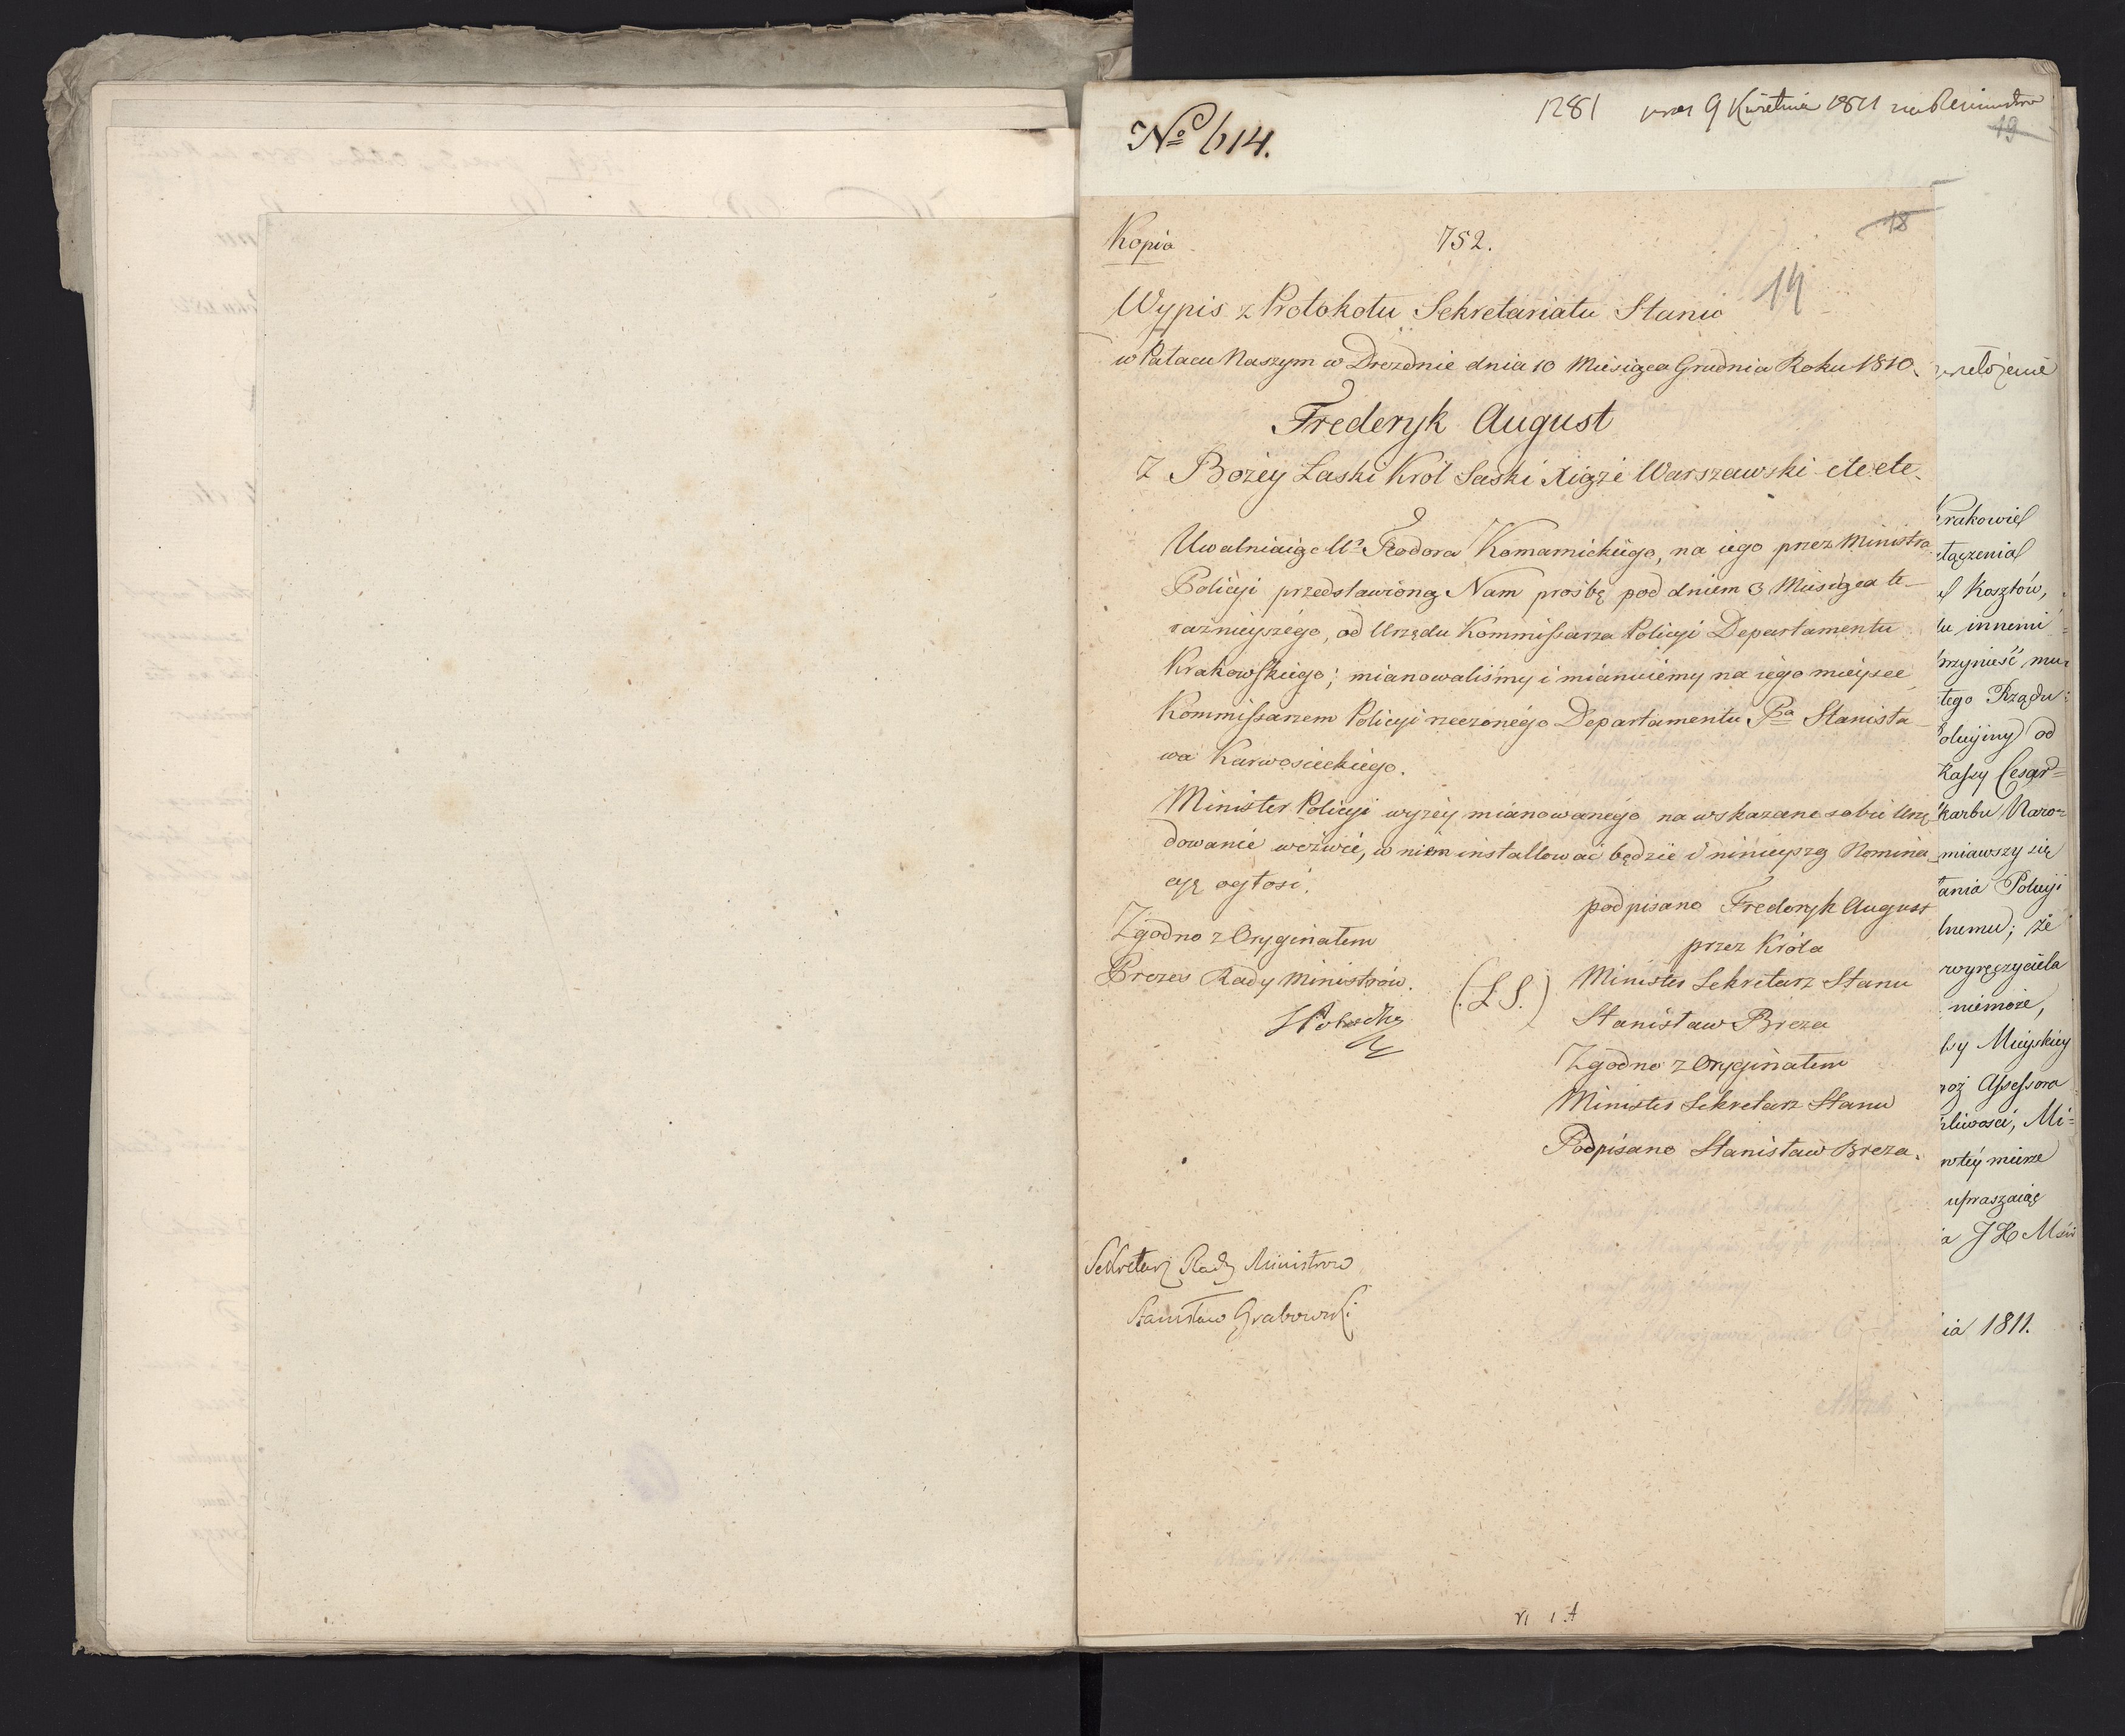 1281 9 Kwietnia 1811
19
No 614.
Kopia 752.
18
14
Wypis z Protokołu Sekretariatu Stanu
w Pałacu Naszym w Dreznie dnia 10 Miesiąca Grudnia Roku 1810.
Frederyk August
Z Bożey Łaski Król Saski Xiąże Warszawski etc etc.
Uwalniaiąc Ur Teodora Komarnickiego, na iego przez Ministra
Policyi przedstawioną Nam prośbę pod dniem 3 Miesiąca te-
raźnieyszégo, od Urzędu Kommissarza Policyi Departamentu
Krakowskiego; mianowaliśmy i mianuiémy na iégo mieysce
Kommissarzem Policyi rzeczonégo Departamentu Pa Stanisła-
wa Karwosieckiego.
Minister Policyi wyzéy mianowanégo na wskazane sobie Urzę-
dowanie wezwie, w niem installować będzie i ninieyszą Nomina-
cyą ogłosi.
podpisano Frederyk August
przez Króla
Minister Sekretarz Stanu
(L S.)
Stanisław Breza
Zgodno z Oryginałem
Minister Sekretarz Stanu
Podpisano Stanisław Breza.
Zgodno z Oryginałem
Prezes Rady Ministrów.
Sekretarz Rady Ministrow
Stanisław Grabowski
Krakowie
łączenia
Kosztów,
innemi
przynieść mu-
tego Rządu
od
Kassy Cesar=
karbu Naro=
miawszy się
ania Policyi
lnemu; że
wyręczyciela
niemoże,
sy Mieyskiey
Assessora
Mi=
w téy mierze
upraszaiąc
a J K Mści
ia 1811.